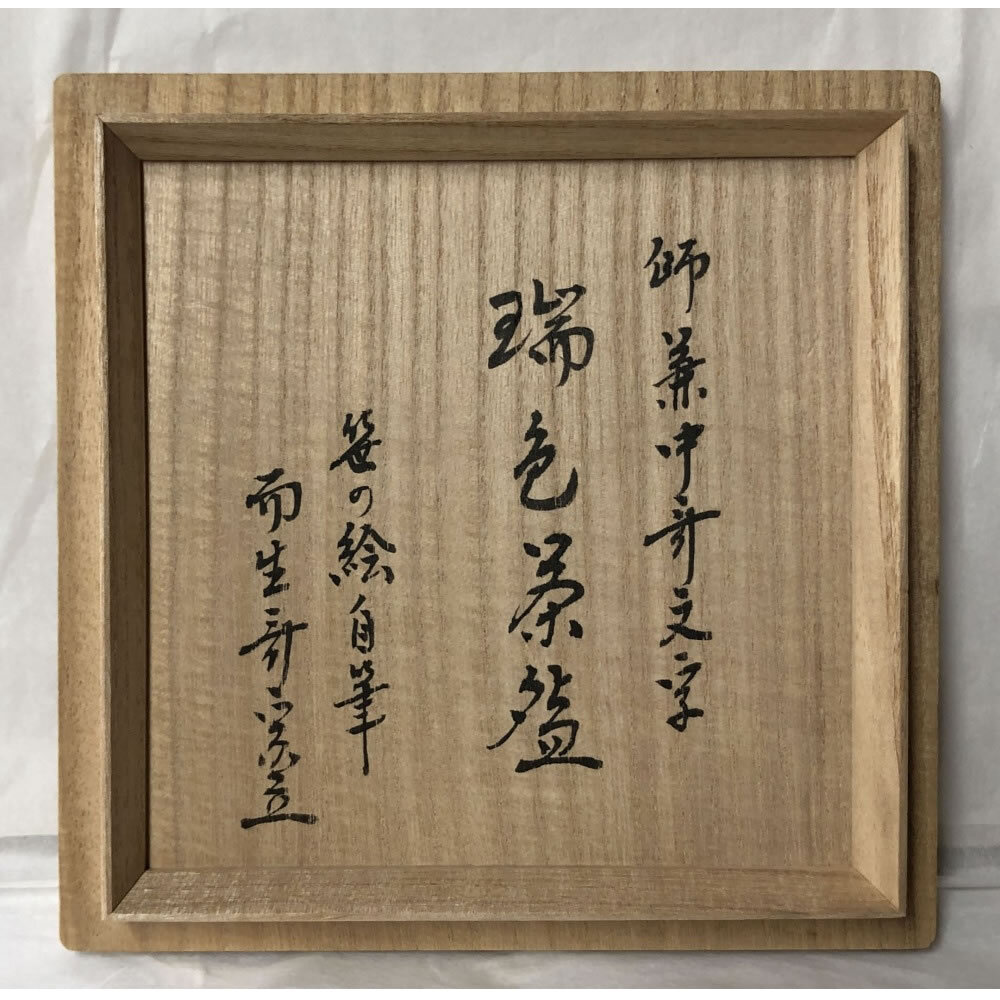 師兼中斎文字
瑞色茶盌
笹の絵自筆
而生斎